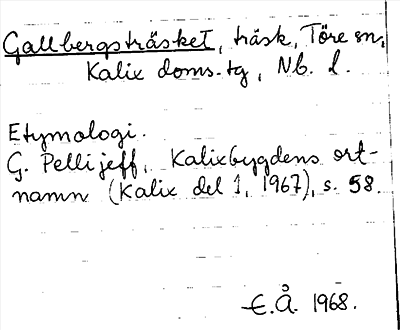 Gallbergsträsket, träsk, Töre sn,
Kalix doms.tg, Nb. l.
Etymologi.
G. Pellijeff, Kalixbygdens ort-
namn (Kalix del 1, 1967), s. 58.
E.Å. 1968.